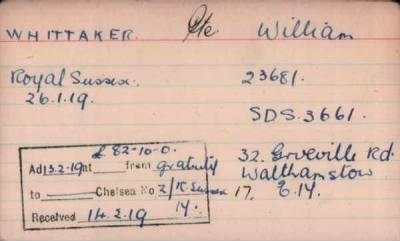 WHITTAKER. Pte William
Royal Sussex. 23681.
26.1.19.
SDS.3661.
£ 82-10-0.
Ad 13.2.19 nt from gratuity
32. Rd.
Walthamstow
to Chelsea No 2/R. Sussex 17. E.17.
Received 14.2.19 14.